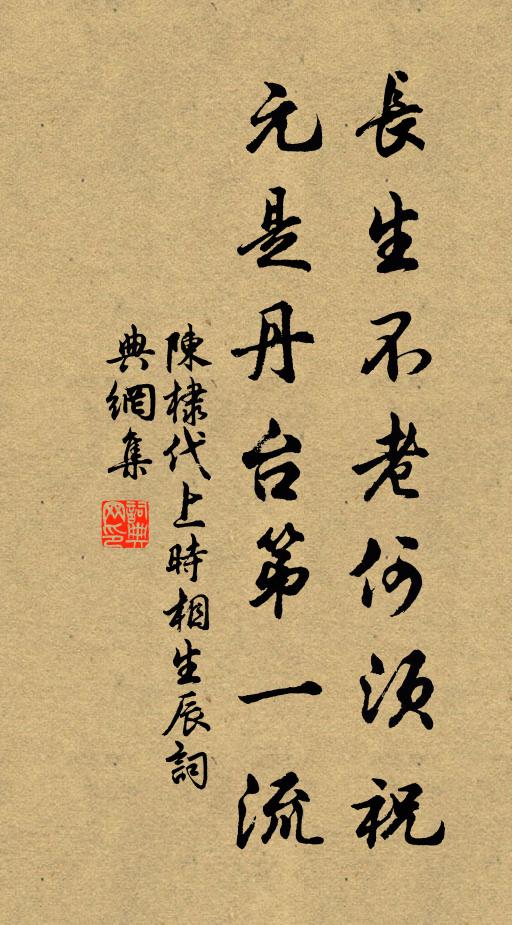 長生不老何須祝
元是丹台第一流
陳棣代上時相生辰詞
典網集
詞典
网印